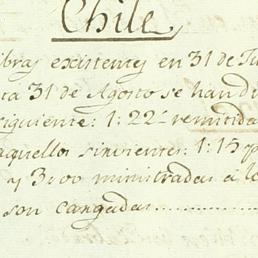 Chile,
ibras existentes en 31 de Ju
ta 31 de Agosto se han di
siguiente: 1:22 remitida
aquellos sirvientes: 1:15 p
y 3000 ministradas a lo
son cargadas